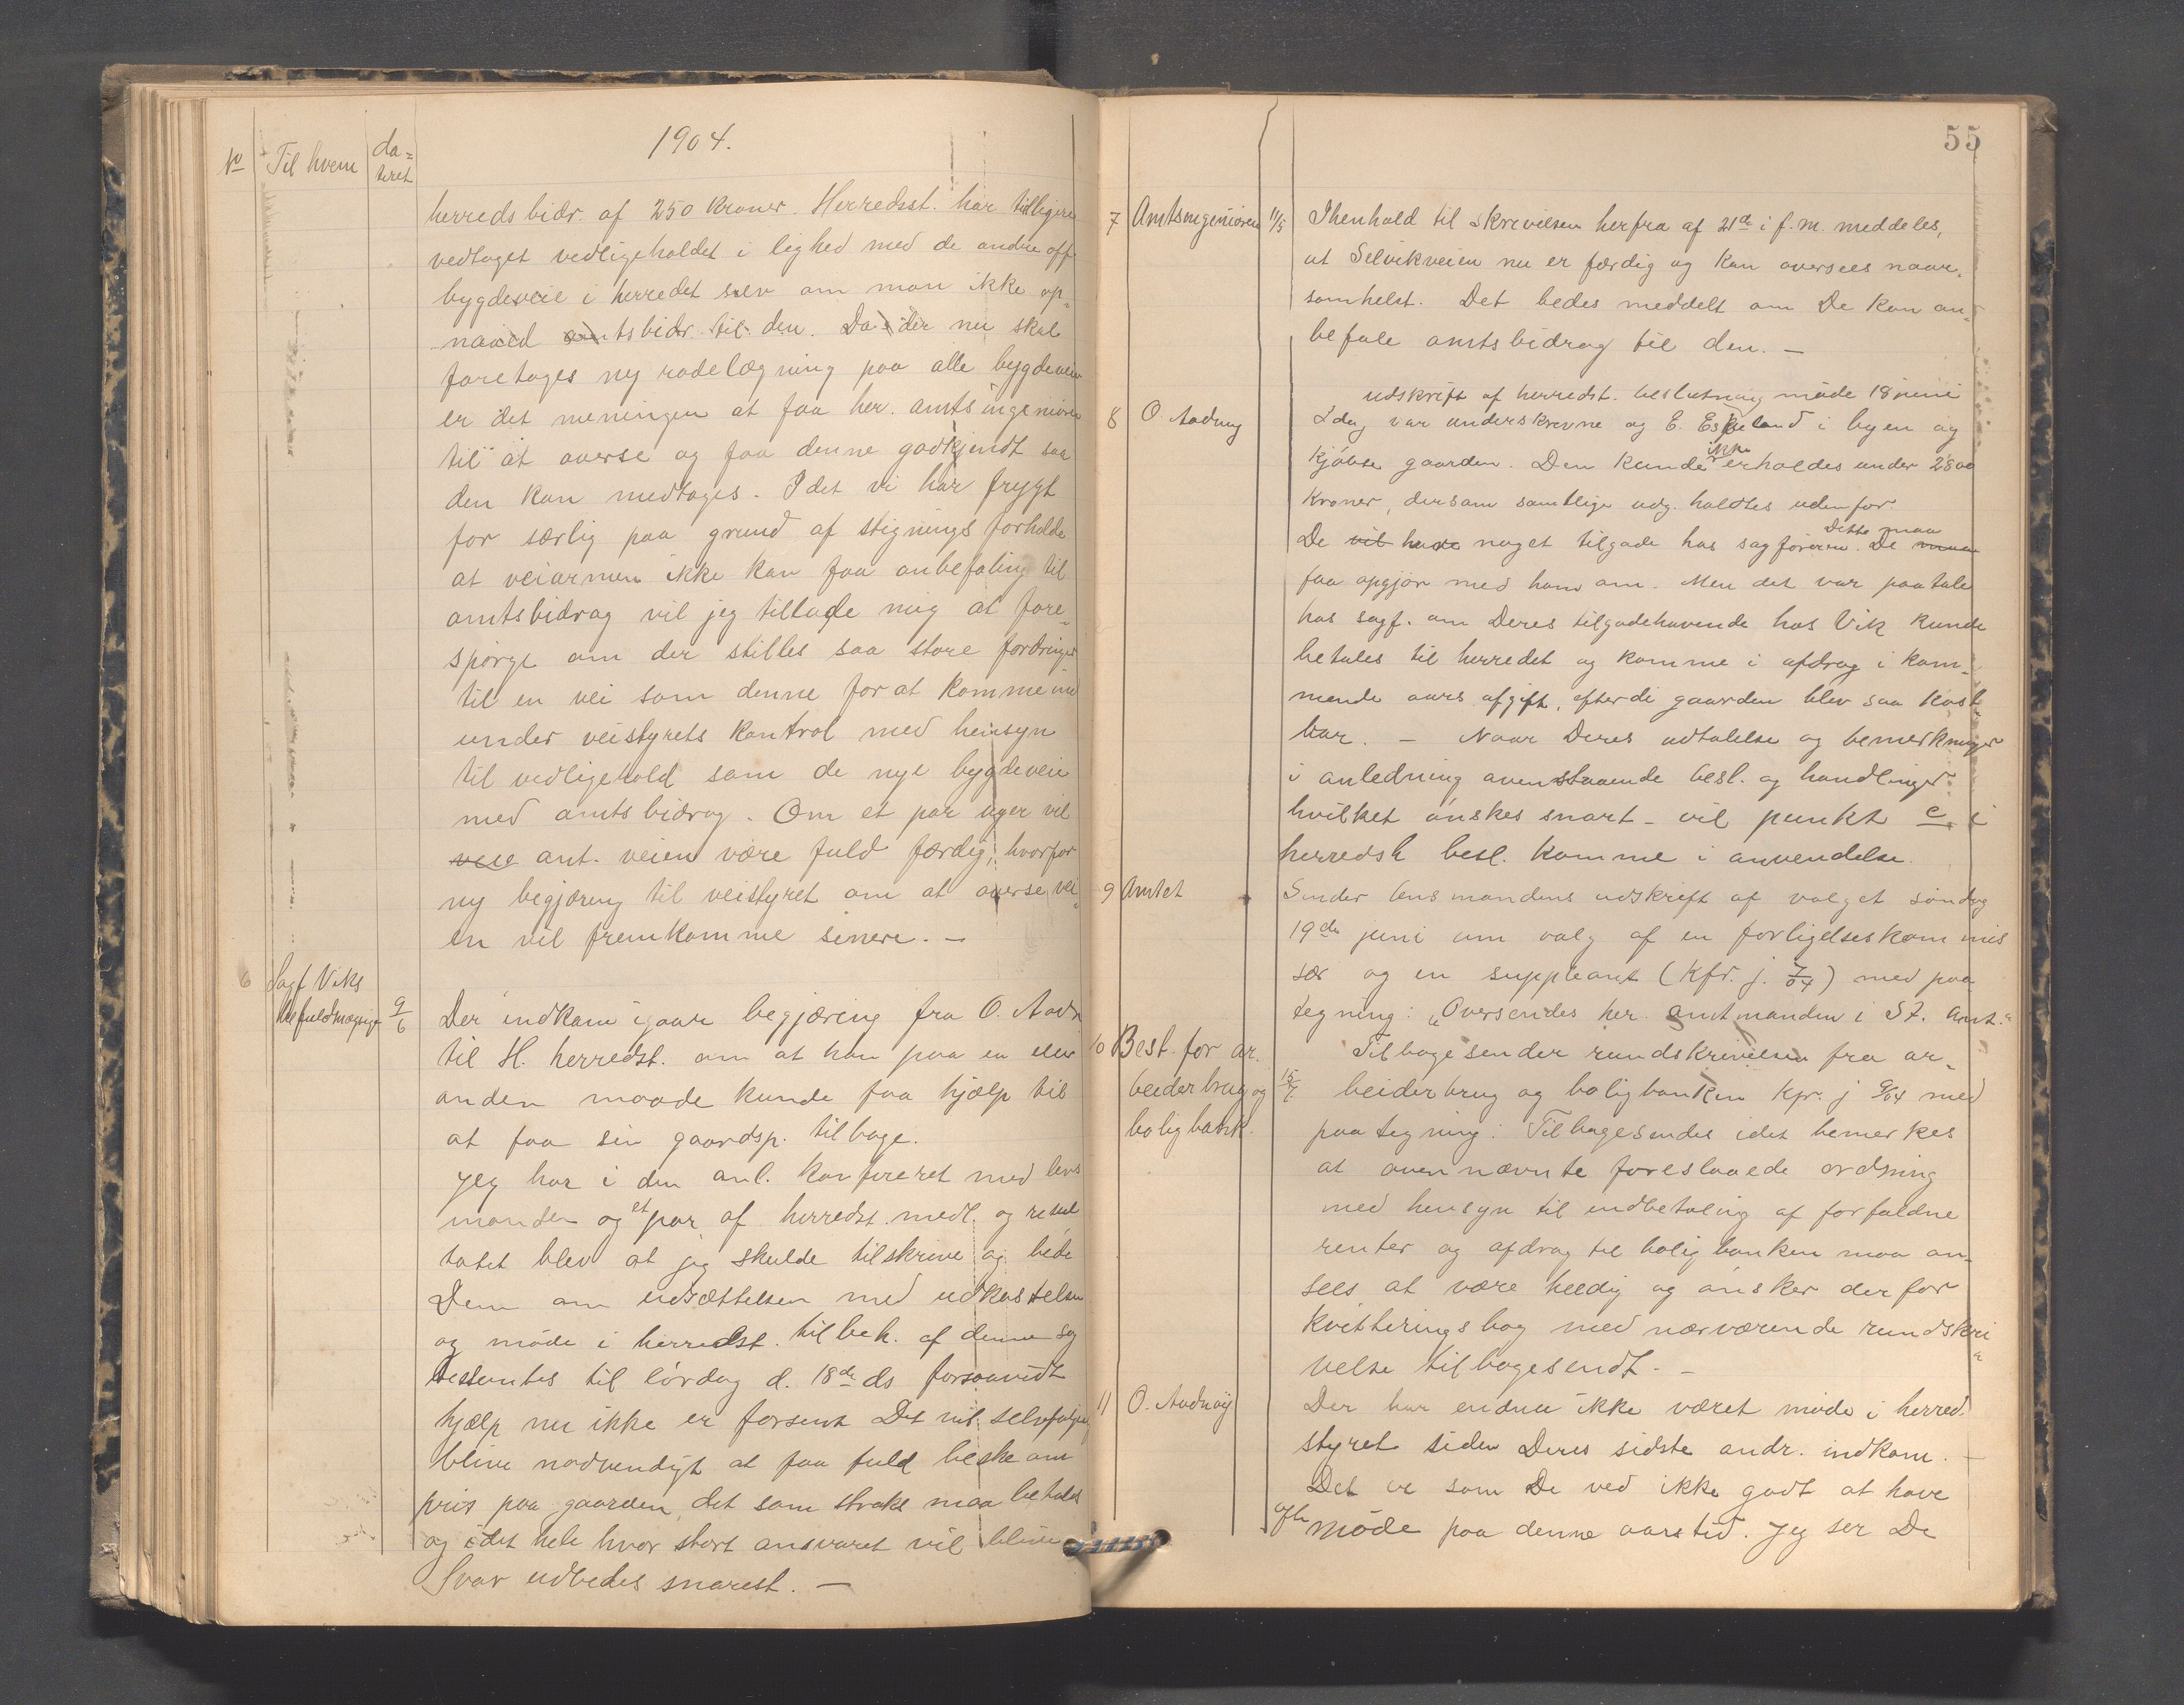 1904.
No Til hvem da=
teret
herreds bidr. af 250 kroner. Herredsst. har tilligere
vedtaget vedligeholdet i lighed med de andre off.
bygdeveie i herredet selv om man ikke op-
naaed amtsbidr. til den. Da der nu skal
foretages ny rodelægning paa alle bygdeveie
er det meningen at faa her. amtsingeniøren
til at overse og faa denne godkjendt saa
den kan medtages. Idet vi har frygt
for særlig paa grund af stignings forholde
at veiarmen ikke kan faa anbefaling til
amtsbidrag vil jeg tillade mig at fore-
spørge om der stilles saa store fordringer
til en vei som denne for at komme ind
under veistyrets kontrol med hensyn
til vedligehold som de nye bygdeveie
med amtsbidrag. Om et par uger vil
veie ant. veien være fuld færdig, hvorfor
ny begjæring til veistyret om at overse vei-
en vil fremkomme senere. —
6 Sagf Viks
fuldmægtige 9/6 Der indkom igaar begjæring fra O. Aadn.
til H. herredst. om at han paa en eller
anden maade kunde faa hjælp til
at faa sin gaardsp. tilbage.
Jeg har i den anl. konfereret med lens
manden og et par af herredst. medl. og resul
tatet blev at jeg skulde tilskrive og bede
Dem om udsættelsen med udkastelsen
og møde i herredst. til beh. af denne sag
bestemtes til lørdag d. 18de ds forsaavidt
hjælp nu ikke er forsent Det vil selvfølgelig
blive nødvendigt at faa fuld beske om
pris paa gaarden, det som straks maa betales
og i det hele hvor stort ansvaret vil blive
Svar udbedes snarest. —
55
7 Amtsingeniøren 11/5 Ihenhold til skrivelsen herfra af 21de i f. m. meddeles,
at Selvikveien nu er færdig og kan oversees naar-
somhelst. Det bedes meddelt om De kan an-
befale amtsbidrag til den. —
udskrift af herredst. beslutning møde 18 juni
8 O. Aadnøy Idag var underskrevne og E. Eskeland i byen og
kjøbte gaarden. Den kunde ikke erholdes under 2800
kroner, dersom samtlige udg. holdtes udenfor.
De vil have noget tilgode hos sagføreren. Dette maa De maa
faa opgjør med ham om. Men det var paatale
hos sagf. om Deres tilgodehavende hos Vik kunde
betales til herredet og komme i afdrag i kom-
mende aars afgift, efterdi gaarden blev saa kost
bar. — Naar Deres udtalelse og bemerkninger
i anledning ovenstaaende besl. og handlinger
hvilket ønskes snart – vil punkt c i
herredsh besl. komme i anvendelse.
9 Amtet Sender lensmandens udskrift af valget søndag
19de juni om valg af en forligelseskommis
sær og en suppleant (Kfr. j. 7/04) med paa
tegning: „Oversendes her. amtmanden i St. Amt."
10 Best. for ar.
beiderbrug og
boligbank. 15/7 Tilbagesender rundskrivelsen fra ar-
beiderbrug og boligbanken kfr. j 9/04 med
paategning: Tilbagesendes idet bemerkes
at ovennævnte foreslaaede ordning
med hensyn til indbetaling af forfaldne
renter og afdrag til boligbanken maa an-
sees at være heldig og ønsker derfor
kvitteringsbog med nærværende rundskri
velse tilbagesendt. —
11 O. Aadnøy Der har endnu ikke været møde i herred.
styret siden Deres sidste andr. indkom. —
Det er som De ved ikke godt at have
ofte møde paa denne aarstid. Jeg ser De